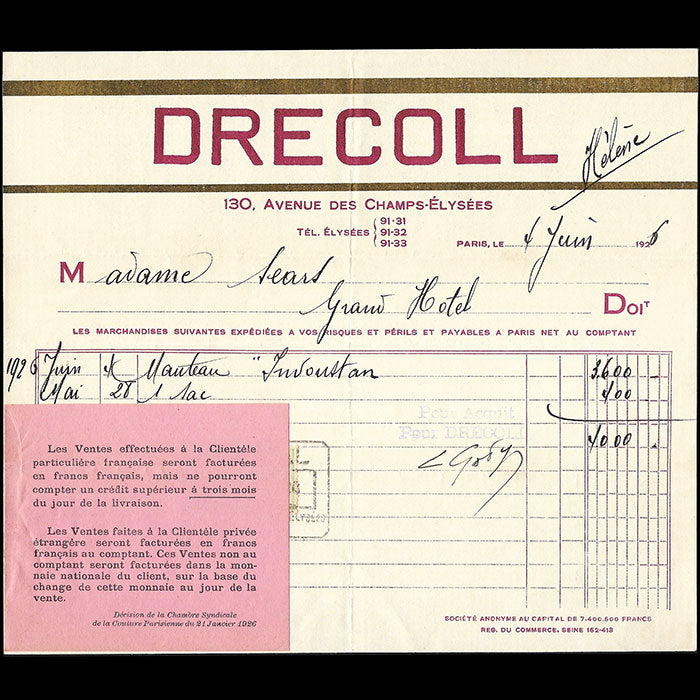 DRECOLL
Hélène
130, AVENUE DES CHAMPS-ÉLYSÉES
TÉL. ÉLYSÉES 91-31
91-32
91-33
PARIS, LE 4 Juin 1926
Madame Sears
Grand Hotel
DOIT
LES MARCHANDISES SUIVANTES EXPÉDIÉES A VOS RISQUES ET PÉRILS ET PAYABLES A PARIS NET AU COMPTANT
1926 Juin 4 Manteau "Indoustan 3.600
Mai 28 1 Sac 400
Pour Acquit
Pour DRECOLL
4000
Les Ventes effectuées à la Clientèle
particulière française seront facturées
en francs français, mais ne pourront
compter un crédit supérieur à trois mois
du jour de la livraison.
Les Ventes faites à la Clientèle privée
étrangère seront facturées en francs
français au comptant. Ces Ventes non au
comptant seront facturées dans la mon-
naie nationale du client, sur la base du
change de cette monnaie au jour de la
vente.
Décision de la Chambre Syndicale
de la Couture Parisienne du 21 Janvier 1926
SOCIÉTÉ ANONYME AU CAPITAL DE 7.400.500 FRANCS
REG. DU COMMERCE. SEINE 162-413